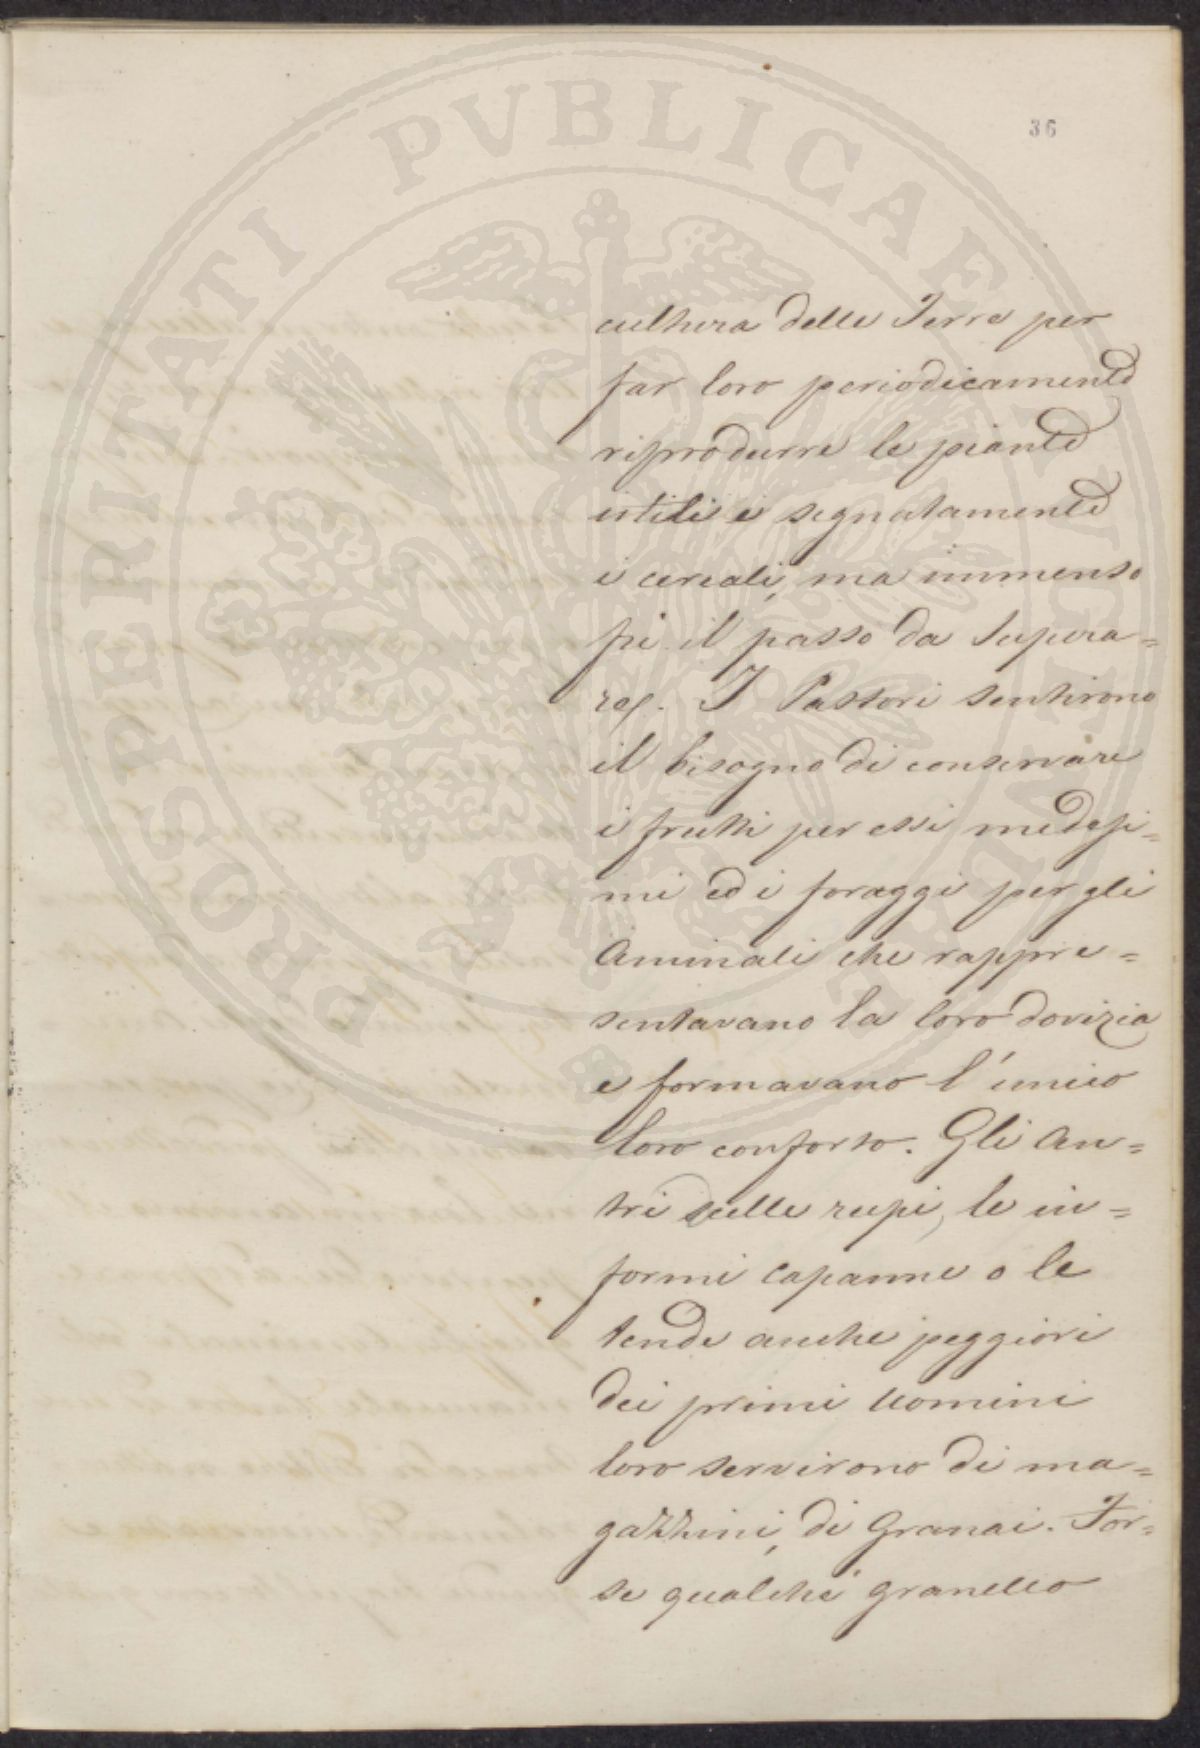 PROSPERITATI PVBLICAE AVGENDAE
36
cultura delle Terre per
far loro periodicamente
riprodurre le piante
utili e segnatamente
i cereali, ma immenso
fù il passo da supera=
re. I Pastori sentirono
il bisogno di conservare
i frutti per essi medesi=
mi ed i foraggi per gli
Animali che rappre=
sentavano la loro dovizia
e formavano l'unico
loro conforto. Gli an=
tri delle rupi, le in=
formi capanne o le
tende anche peggiori
dei primi uomini
loro servirono di ma=
gazzini, di Granai. For=
se qualche granello